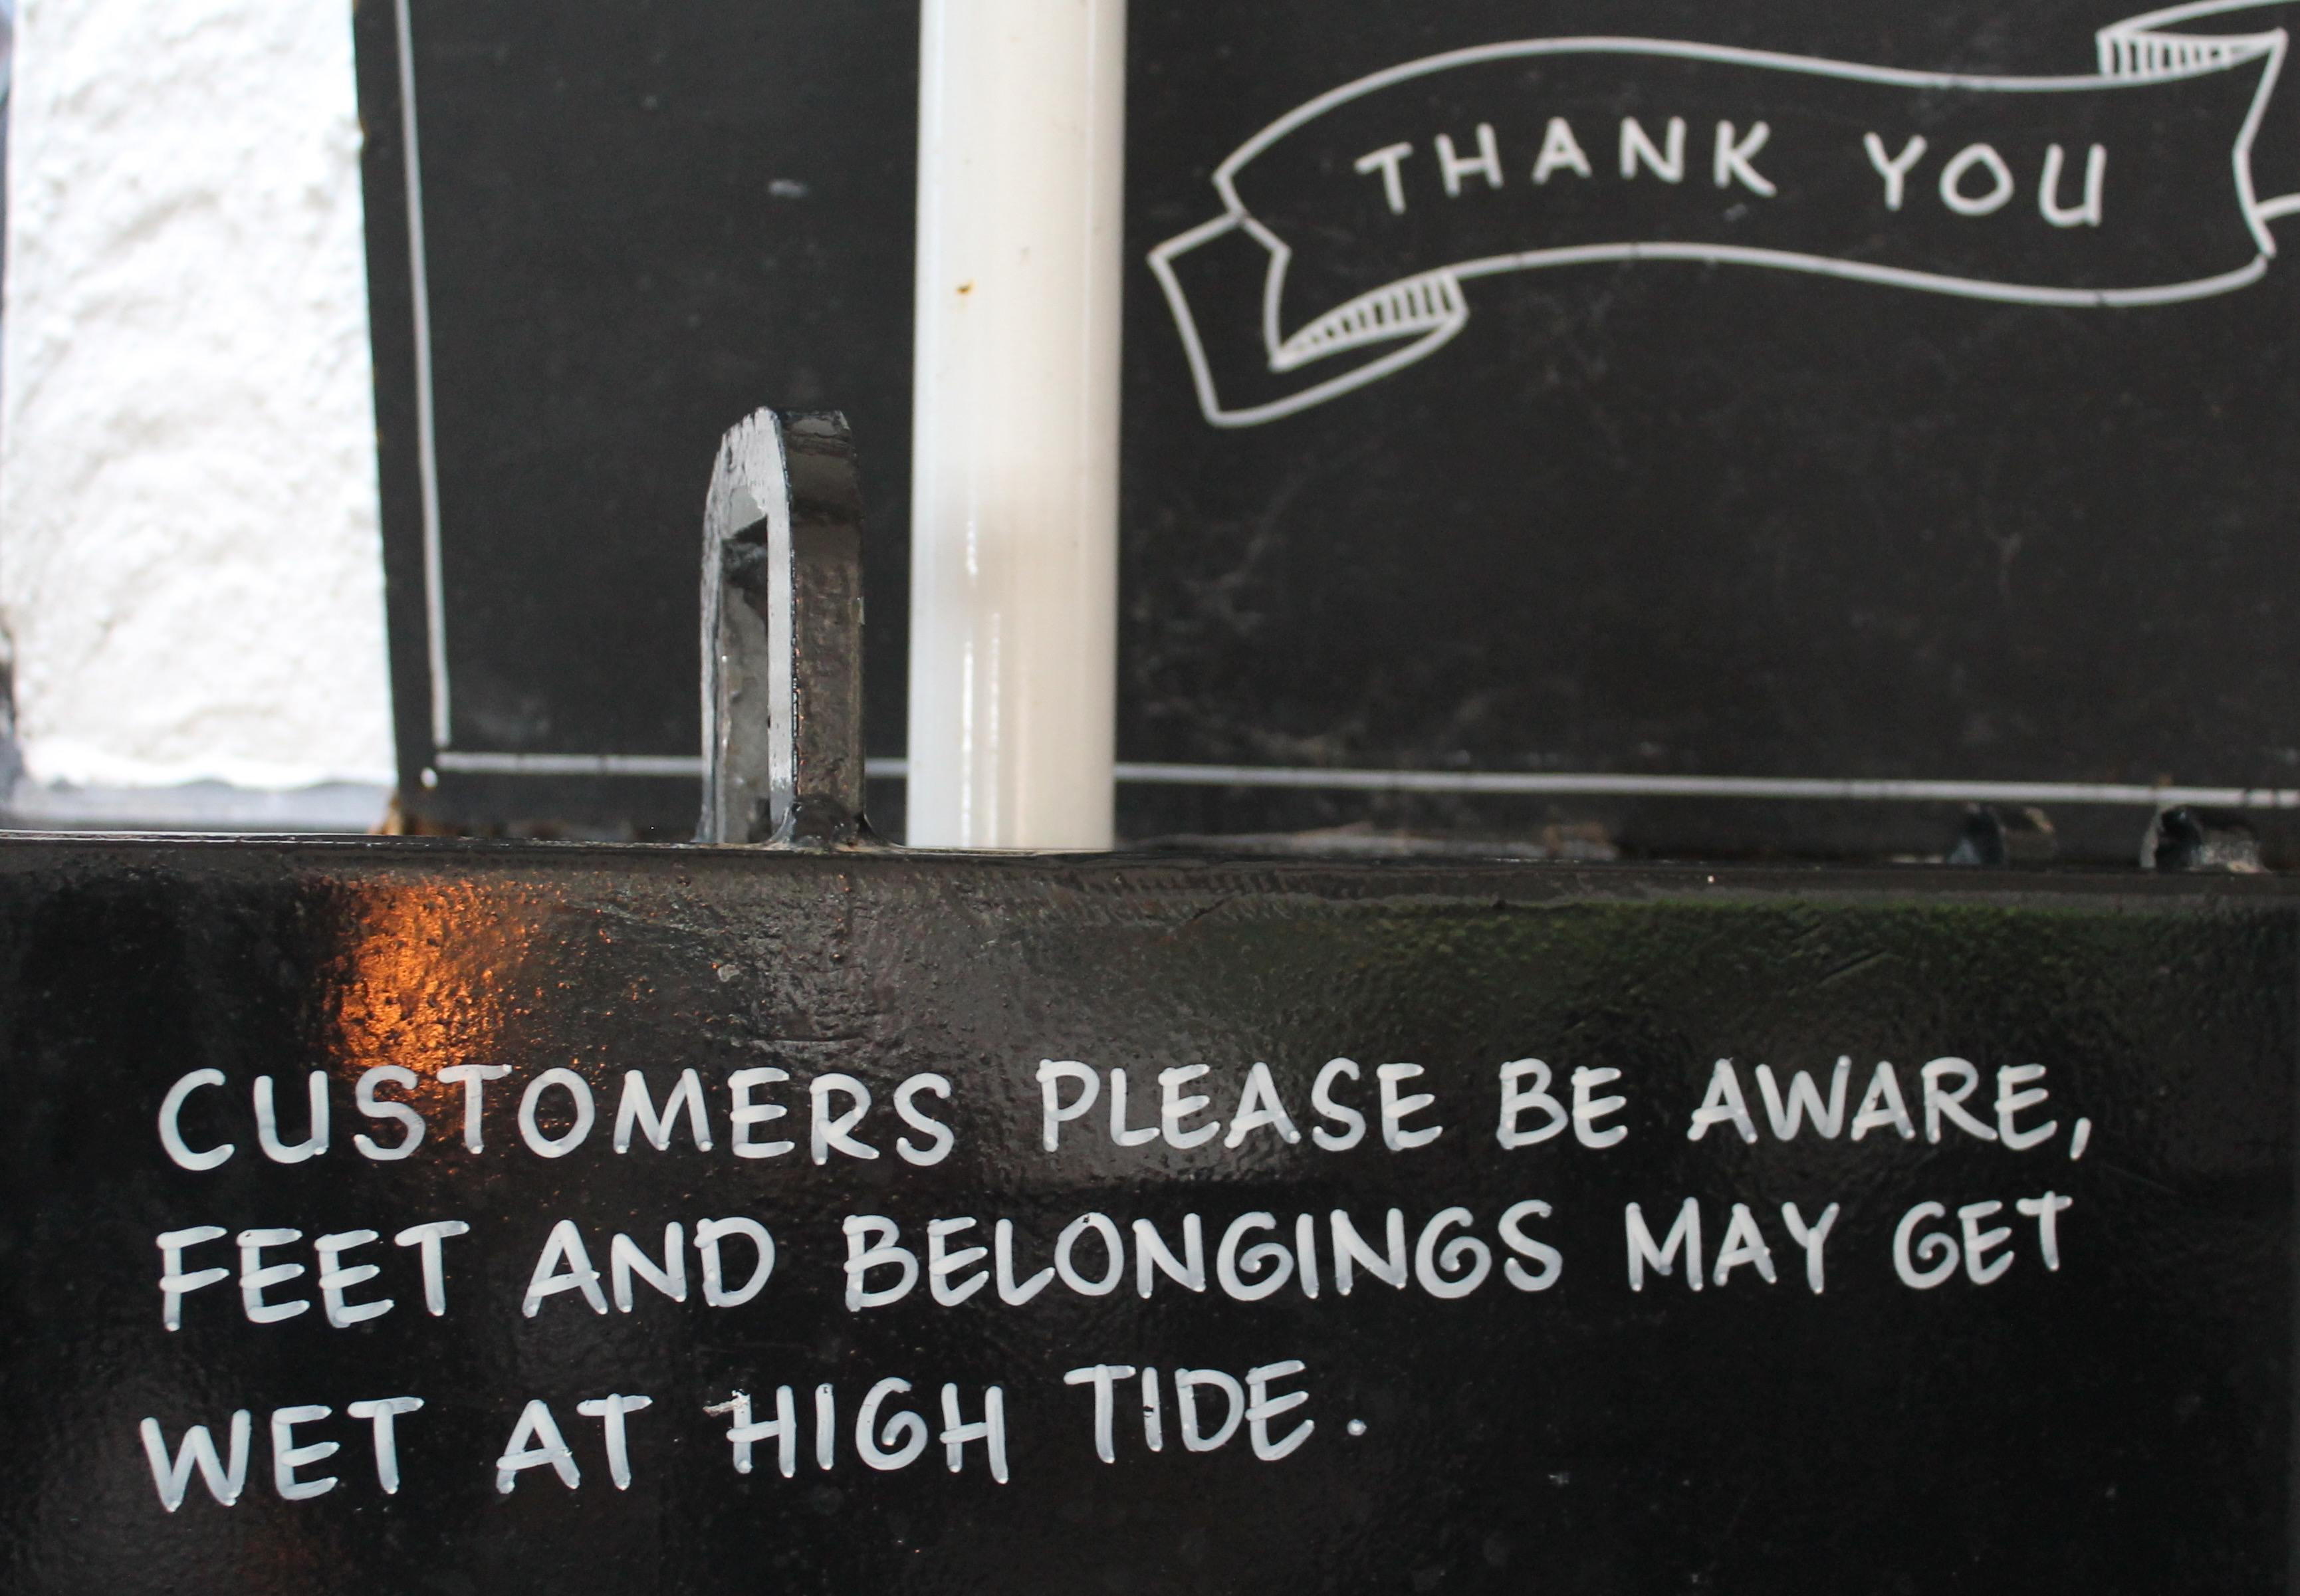 THANK YOU
CUSTOMERS PLEASE BE AWARE,
FEET AND BELONGINGS MAY GET
WET AT HIGH TIDE.